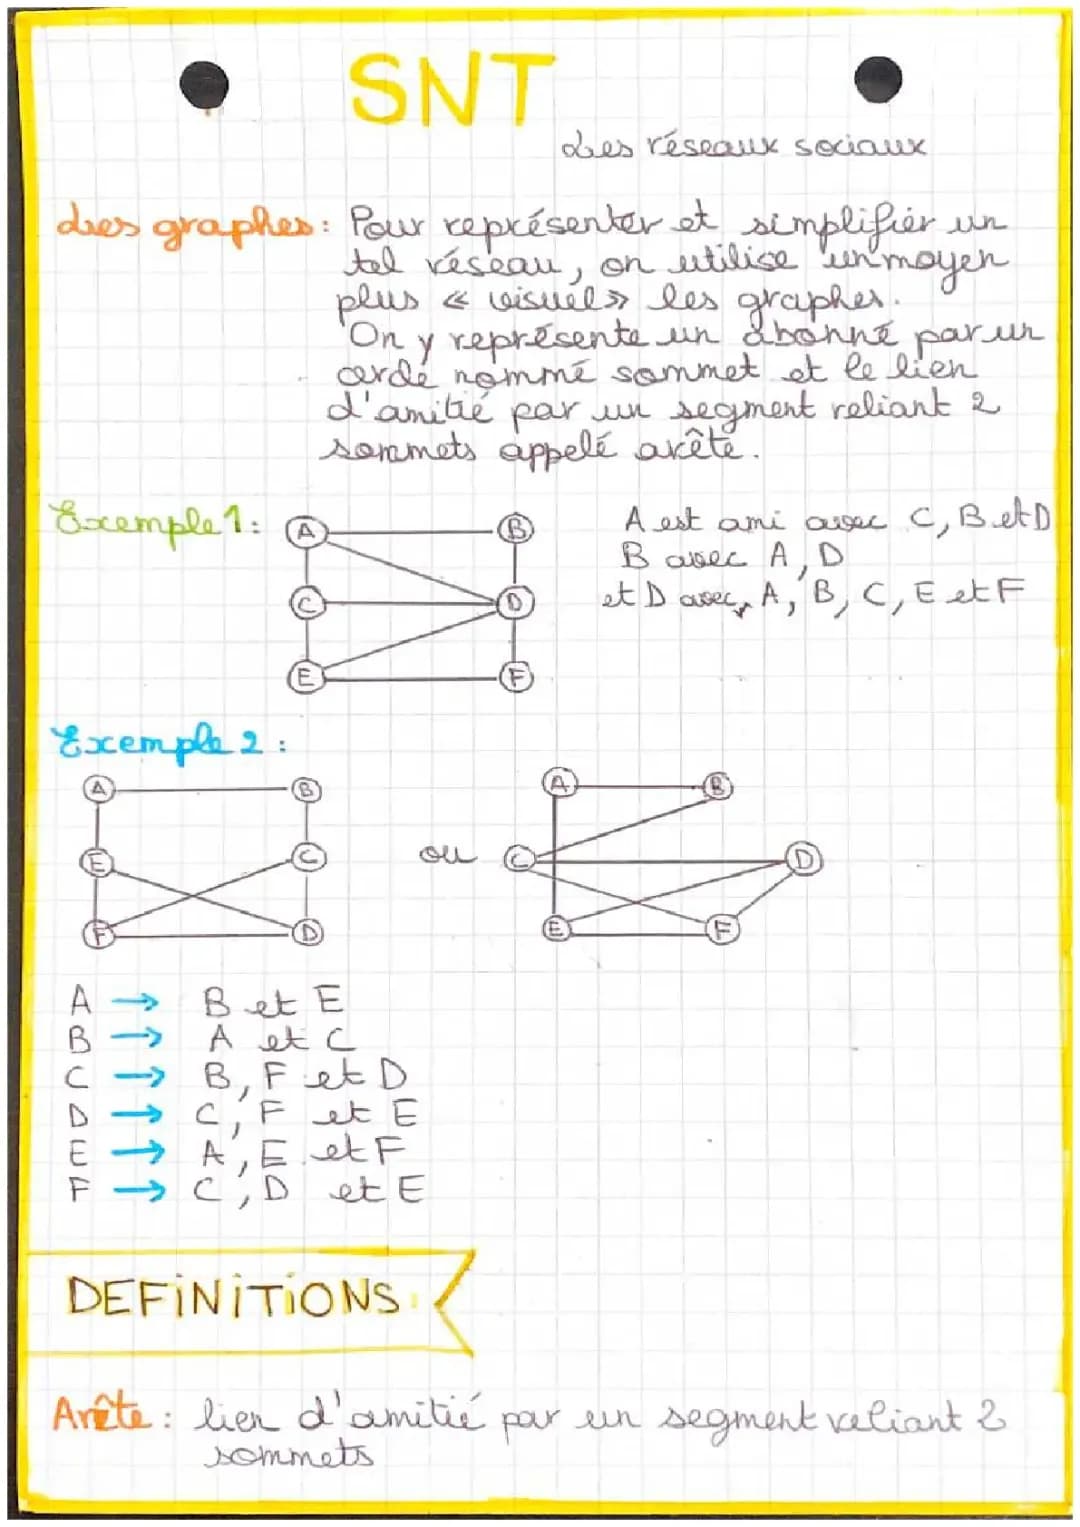 SNT
Les réseaux sociaux
Les graphes: Pour représenter et simplifier un
tel réseau, on utilise un moyen
plus « visuel » les graphes.
On y représente un abonné par un
cercle nommé sommet et le lien
d'amitié par un segment reliant 2
sommets appelé arête.
Exemple 1:
A B
C D
E F
A est ami avec C, B et D
B avec A, D
et D avec, A, B, C, E et F
Exemple 2:
A B
E C
F D
ou
A B
C D
E F
A → B et E
B → A et C
C → B, F et D
D → C, F et E
E → A, E et F
F → C, D et E
DEFINITIONS
Arête: lien d'amitié par un segment reliant 2
sommets